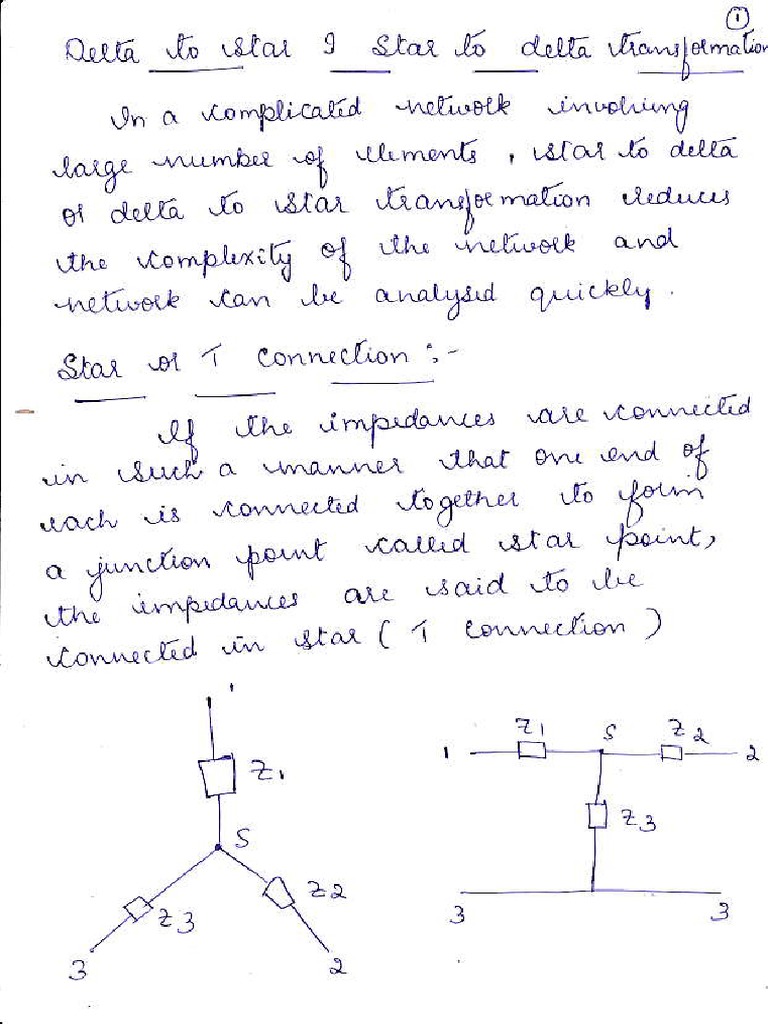 1
Delta to star & star to delta transformation
In a complicated network involving
large number of elements, star to delta
or delta to star transformation reduces
the complexity of the network and
network can be analysed quickly.
Star or T connection :-
If the impedances are connected
in such a manner that one end of
each is connected together to form
a junction point called star point,
the impedances are said to be
connected in star ( T connection )
1
Z1
S
Z2
Z3
3
2
Z1 S Z2
1 2
Z3
3 3